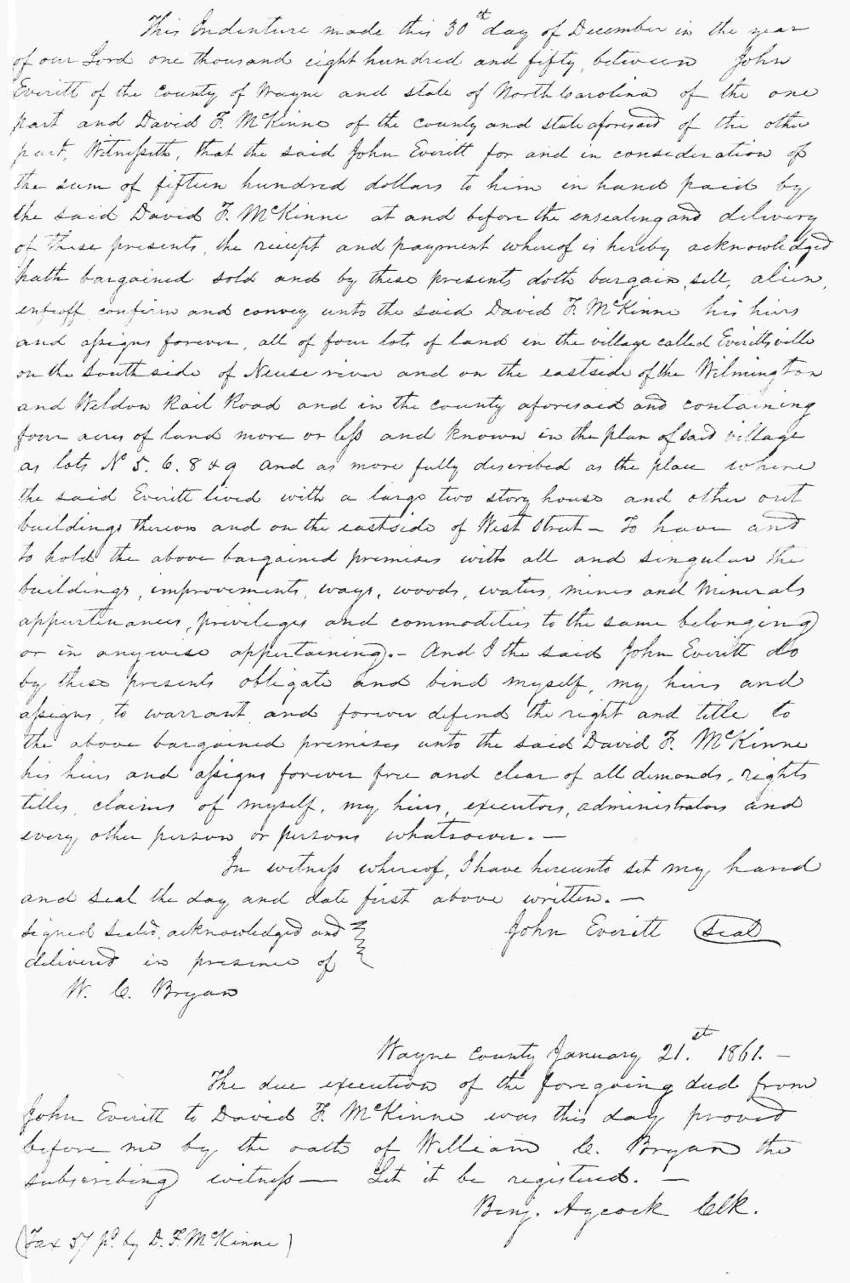 This Indenture made this 30th day of December in the year
of our Lord one thousand eight hundred and fifty, between John
Everitt of the County of Wayne and state of North Carolina of the one
part and David F. McKinne of the county and state aforesaid of the other
part, Witnesseth, that the said John Everitt for and in consideration of
the sum of fifteen hundred dollars to him in hand paid by
the said David F. McKinne at and before the ensealing and delivery
of these presents, the receipt and payment whereof is hereby acknowledged
hath bargained sold and by these presents doth bargain, sell, alien,
enfeoff confirm and convey unto the said David F. McKinne his heirs
and assigns forever, all of four lots of land in the village called Everittsville
on the south side of Neuse river and on the eastside of the Wilmington
and Weldon Rail Road and in the county aforesaid and containing
four acres of land more or less and known in the plan of said village
as lots No 5. 6. 8 & 9 and as more fully described as the place where
the said Everitt lived with a large two story house and other out
buildings thereon and on the eastside of West Street — To have and
to hold the above bargained premises with all and singular the
buildings, improvements, ways, woods, waters, mines and minerals
appurtenances, privileges and commodities to the same belonging
or in anywise appertaining. — And I the said John Everitt do
by these presents obligate and bind myself, my heirs and
assigns, to warrant and forever defend the right and title to
the above bargained premises unto the said David F. McKinne
his heirs and assigns forever free and clear of all demands, rights
titles, claims of myself, my heirs, executors, administrators and
every other person or persons whatsoever. —
In witness whereof, I have hereunto set my hand
and seal the day and date first above written. —
signed sealed, acknowledged and John Everitt Seal
delivered in presence of
W. C. Bryan
Wayne County January 21.st 1861. —
The due execution of the foregoing deed from
John Everitt to David F. McKinne was this day proved
before me by the oath of William C. Bryan the
subscribing witness — Let it be registered. —
Benj. Aycock Clk.
(Tax 57 pd. by D. F. McKinne)